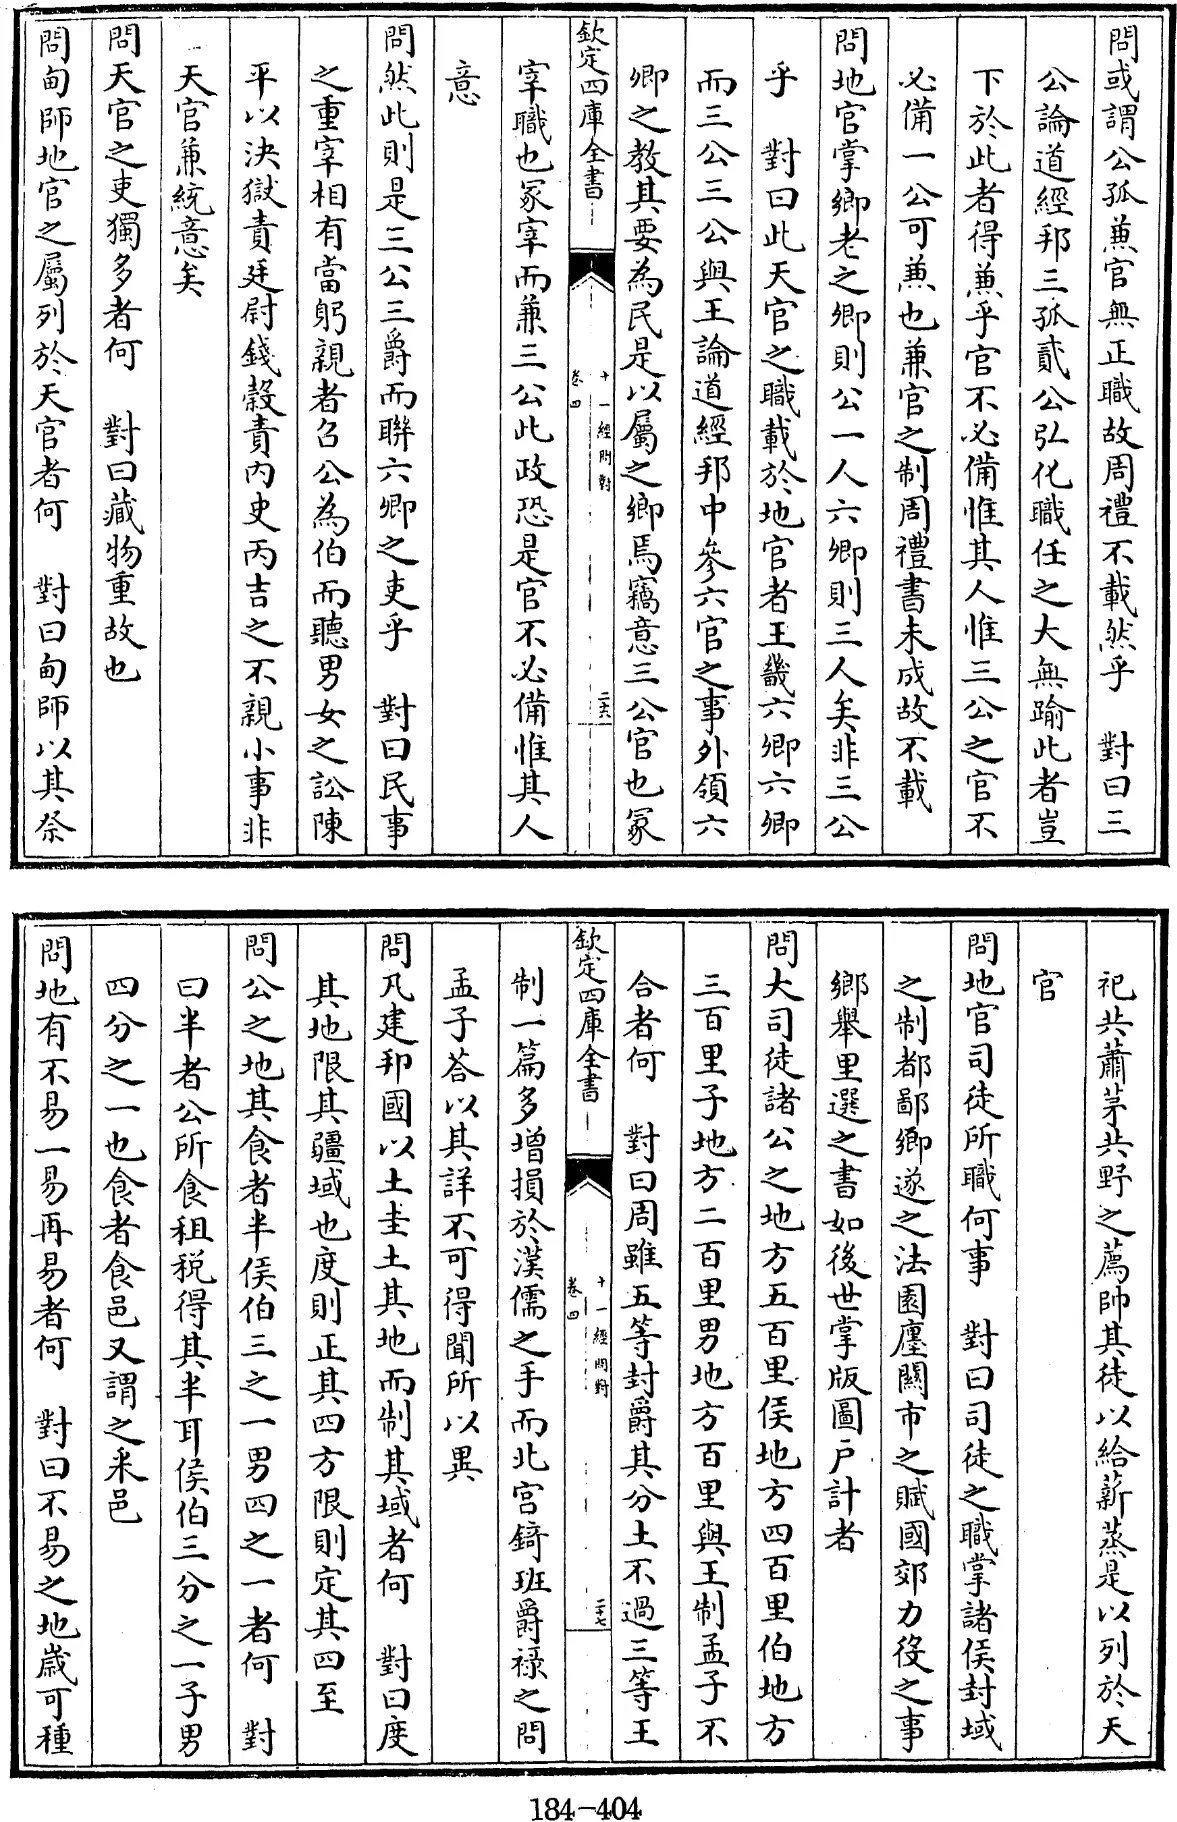 問或謂公孤兼官無正職故周禮不載然乎　對曰三
公論道經邦三孤貳公弘化職任之大無踰此者豈
下於此者得兼乎官不必備惟其人惟三公之官不
必備一公可兼也兼官之制周禮書未成故不載
問地官掌鄉老之鄉則公一人六鄉則三人矣非三公
乎　對曰此天官之職載於地官者王畿六鄉六卿
而三公三公與王論道經邦中參六官之事外領六
卿之教其要為民是以屬之鄉焉竊意三公官也冢
欽定四庫全書
十一經問對
卷四
二十六
宰職也冢宰而兼三公此政恐是官不必備惟其人
意
問然此則是三公三爵而聯六卿之吏乎　對曰民事
之重宰相有當躬親者召公為伯而聽男女之訟陳
平以決獄責廷尉錢穀責內史丙吉之不親小事非
天官兼統意矣
問天官之吏獨多者何　對曰藏物重故也
問甸師地官之屬列於天官者何　對曰甸師以其祭
祀共蕭茅共野之薦帥其徒以給薪蒸是以列於天
官
問地官司徒所職何事　對曰司徒之職掌諸侯封域
之制都鄙鄉遂之法園廛關市之賦國郊力役之事
鄉舉里選之書如後世掌版圖戶計者
問大司徒諸公之地方五百里侯地方四百里伯地方
三百里子地方二百里男地方百里與王制孟子不
合者何　對曰周雖五等封爵其分土不過三等王
欽定四庫全書
十一經問對
卷四
二十七
制一篇多增損於漢儒之手而北宮錡班爵祿之問
孟子答以其詳不可得聞所以異
問凡建邦國以土圭土其地而制其域者何　對曰度
其地限其疆域也度則正其四方限則定其四至
問公之地其食者半侯伯三之一男四之一者何　對
曰半者公所食租稅得其半耳侯伯三分之一子男
四分之一也食者食邑又謂之采邑
問地有不易一易再易者何　對曰不易之地歲可種
184-404